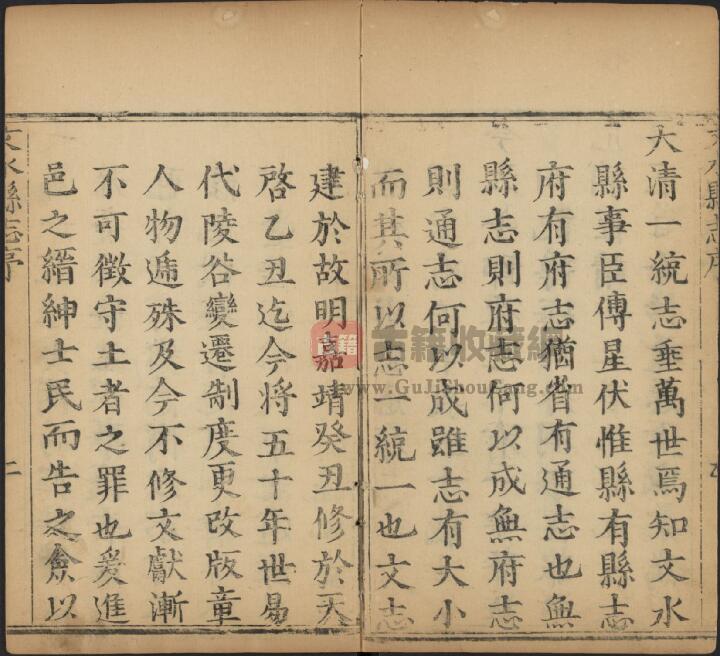 大清一統志垂萬世焉知文水
縣事臣傅星伏惟縣有縣志
府有府志猶省有通志也無
縣志則府志何以成無府志
則通志何以成雖志有大小
而其所以志一統一也文志
建於故明嘉靖癸丑修於天
啓乙丑迄今將五十年世易
代陵谷變遷制度更改版章
人物遞殊及今不修文獻漸
不可徵守土者之罪也爰進
邑之縉紳士民而告之僉以
文水縣志序
二
古籍收藏網
www.GuJiShouCang.com
古籍